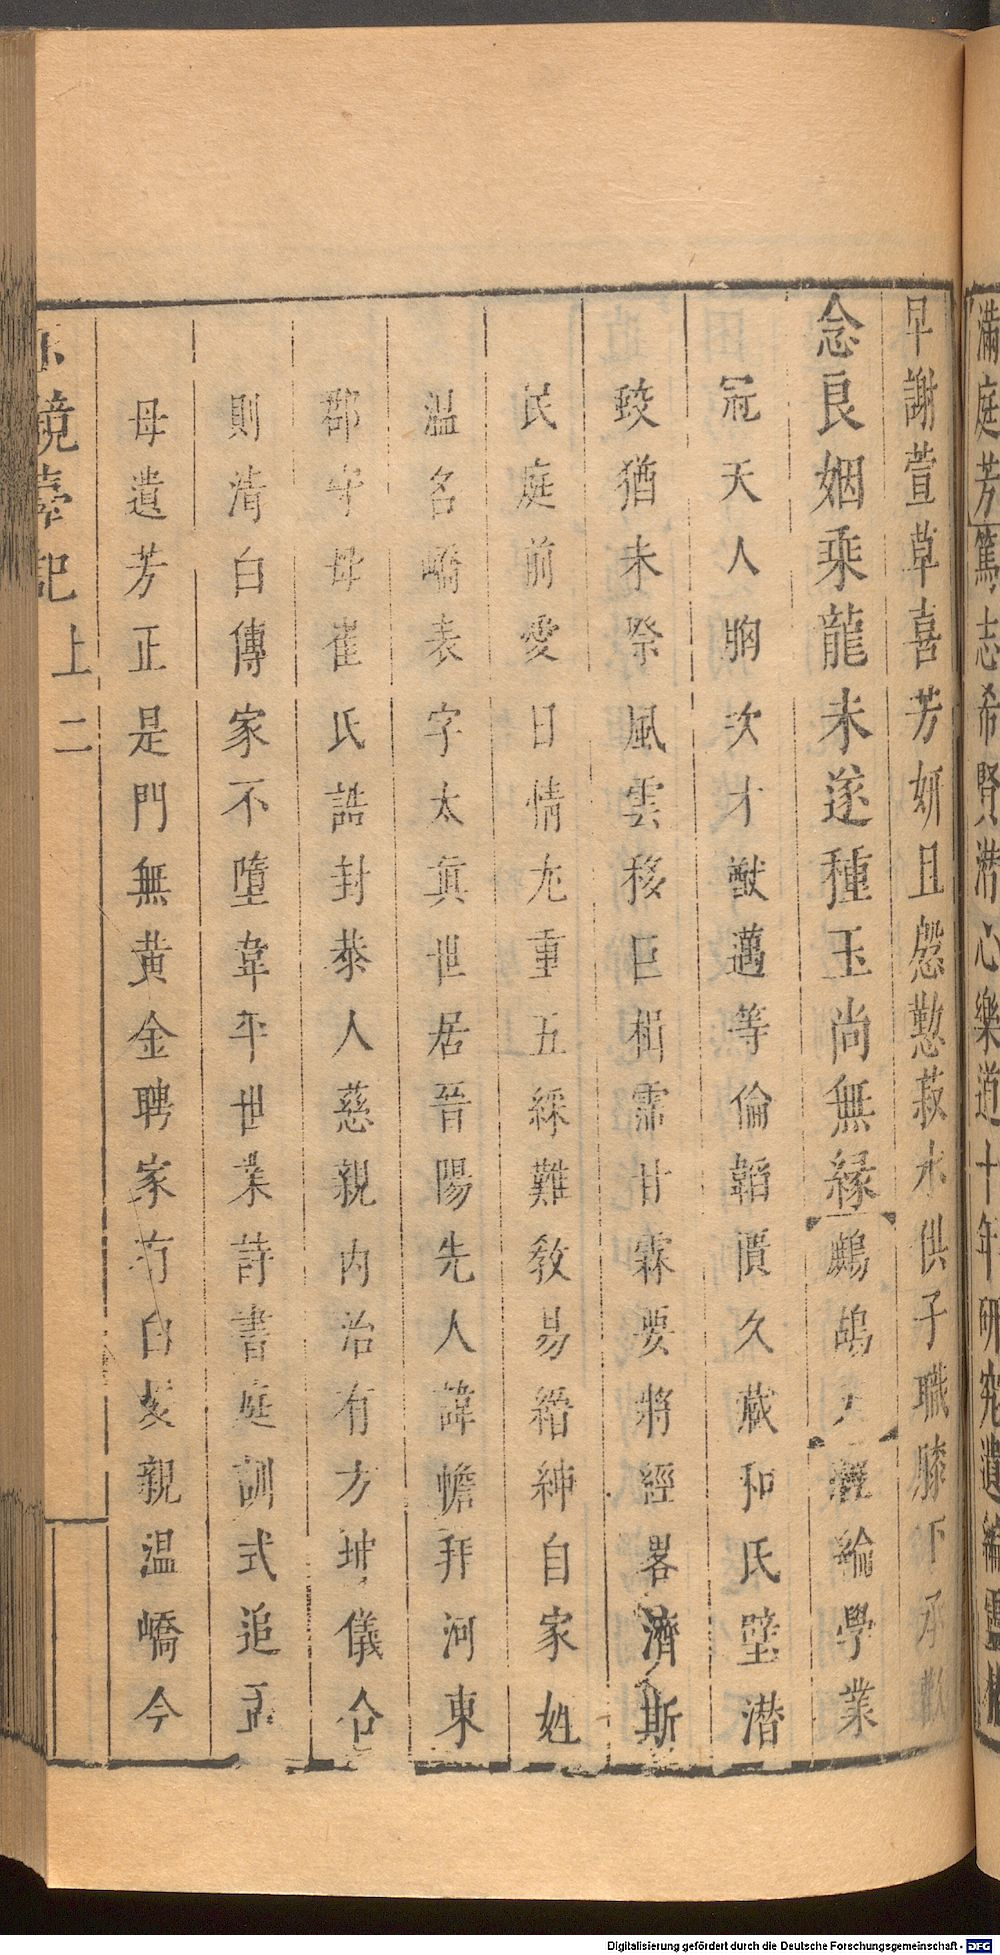 滿庭芳篤志希賢潛心樂道十年研究遺編雪
早謝萱草喜芳妍且慇懃菽水供子職膝下承歡
念良姻乘龍未遂種玉尚無緣鷓鴣天經綸學業
冠天人胸次才猷邁等倫韞價久藏和氏璧潛
蛟猶未際風雲移巨楫霈甘霖要將經畧濟斯
民庭前愛日情尤重五綵難教易綰紳自家姓
温名嶠表字太真世居晉陽先人諱幨拜河東
郡守母崔氏誥封恭人慈親内治有方坤儀合
則清白傳家不墮韋平世業詩書庭訓式追孟
母遺芳正是門無黄金聘家有白髮親温嶠今
玉鏡臺記
上
二
Digitalisierung gefördert durch die Deutsche Forschungsgemeinschaft - DFG